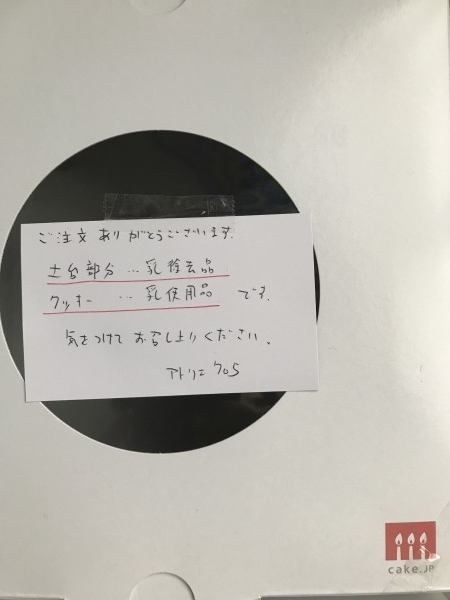 ご注文ありがとうございます.
土台部分…乳除去品
クッキー…乳使用品 です.
気をつけてお召し上りください。
アトリエ 705
cake.JP